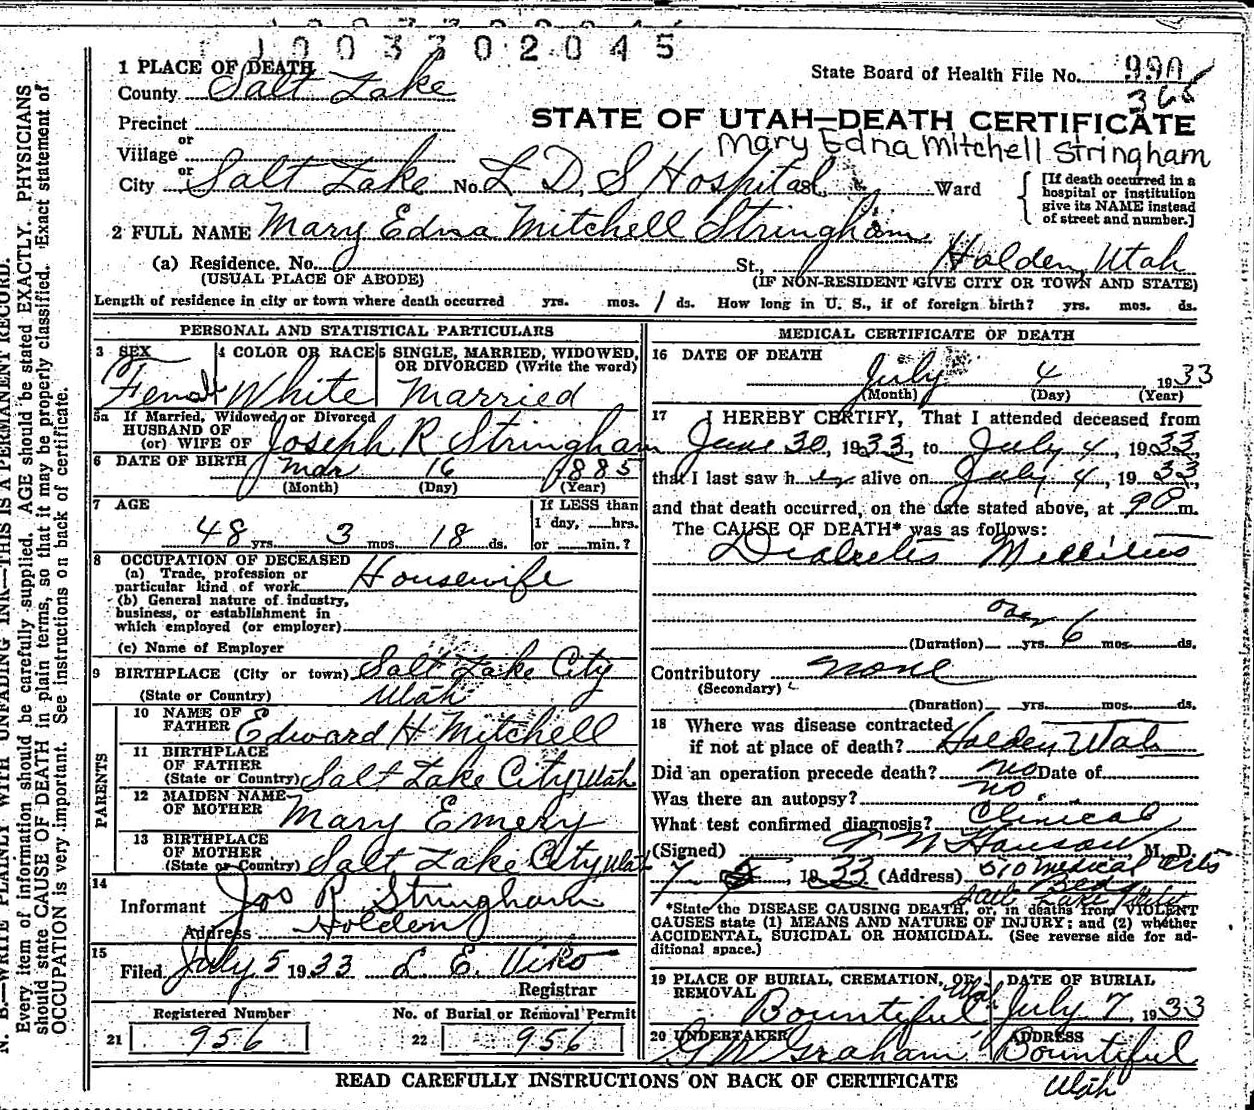 1003702045
1 PLACE OF DEATH
County Salt Lake
State Board of Health File No. 990
366
Precinct
STATE OF UTAH—DEATH CERTIFICATE
or
Mary Edna Mitchell Stringham
Village
or
City Salt Lake No. L D S Hospital St., Ward
[If death occurred in a hospital or institution give its NAME instead of street and number.]
2 FULL NAME Mary Edna Mitchell Stringham
(a) Residence. No. St., Holden, Utah
(USUAL PLACE OF ABODE) (IF NON-RESIDENT GIVE CITY OR TOWN AND STATE)
Length of residence in city or town where death occurred yrs. mos. 1 ds. How long in U. S., if of foreign birth? yrs. mos. ds.
PERSONAL AND STATISTICAL PARTICULARS
3 SEX
Female
4 COLOR OR RACE
White
5 SINGLE, MARRIED, WIDOWED,
OR DIVORCED (Write the word)
Married
5a If Married, Widowed or Divorced
HUSBAND OF
(or) WIFE OF Joseph R Stringham
6 DATE OF BIRTH Mar 16 1885
(Month) (Day) (Year)
7 AGE If LESS than
48 yrs. 3 mos. 18 ds.
1 day, hrs.
or min.?
8 OCCUPATION OF DECEASED
(a) Trade, profession or
particular kind of work Housewife
(b) General nature of industry,
business, or establishment in
which employed (or employer)
(c) Name of Employer
9 BIRTHPLACE (City or town) Salt Lake City
(State or Country) Utah
PARENTS
10 NAME OF
FATHER Edward H Mitchell
11 BIRTHPLACE
OF FATHER
(State or Country) Salt Lake City Utah
12 MAIDEN NAME
OF MOTHER Mary Emery
13 BIRTHPLACE
OF MOTHER
(State or Country) Salt Lake City Utah
14
Informant Jos R Stringham
Address Holden
15
Filed July 5 1933 L. E. Viko
Registrar
Registered Number No. of Burial or Removal Permit
21 956 22 956
MEDICAL CERTIFICATE OF DEATH
16 DATE OF DEATH
July 4 1933
(Month) (Day) (Year)
17 I HEREBY CERTIFY, That I attended deceased from
June 30, 1933, to July 4, 1933,
that I last saw her alive on July 4, 1933,
and that death occurred, on the date stated above, at 9 m.
The CAUSE OF DEATH* was as follows:
Diabetes Mellitus
over
(Duration) yrs. 6 mos. ds.
Contributory none
(Secondary)
(Duration) yrs. mos. ds.
18 Where was disease contracted
if not at place of death? Holden Utah
Did an operation precede death? no Date of
Was there an autopsy? no.
What test confirmed diagnosis? Clinical
(Signed) M. D.
7 5, 1933 (Address) 510 Medical Arts
Bldg
Salt Lake City
*State the DISEASE CAUSING DEATH, or, in deaths from VIOLENT
CAUSES state (1) MEANS AND NATURE OF INJURY; and (2) whether
ACCIDENTAL, SUICIDAL OR HOMICIDAL. (See reverse side for ad-
ditional space.)
19 PLACE OF BURIAL, CREMATION, OR
REMOVAL
Bountiful Utah
DATE OF BURIAL
July 7, 1933
20 UNDERTAKER
G W Graham
ADDRESS
Bountiful
Utah
READ CAREFULLY INSTRUCTIONS ON BACK OF CERTIFICATE
N. B.—WRITE PLAINLY WITH UNFADING INK—THIS IS A PERMANENT RECORD.
Every item of information should be carefully supplied. AGE should be stated EXACTLY. PHYSICIANS
should state CAUSE OF DEATH in plain terms, so that it may be properly classified. Exact statement of
OCCUPATION is very important. See instructions on back of certificate.